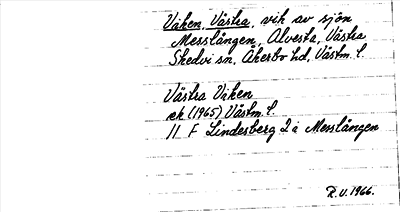 Viken, Västra, vik av sjön
Messlången, Alvesta, Västra
Skedvi sn, Åkerbo hd, Västm. l.
Västra Viken
ek (1965) Västm. l.
11 F Lindesberg 2 i Messlången
R.U. 1966.